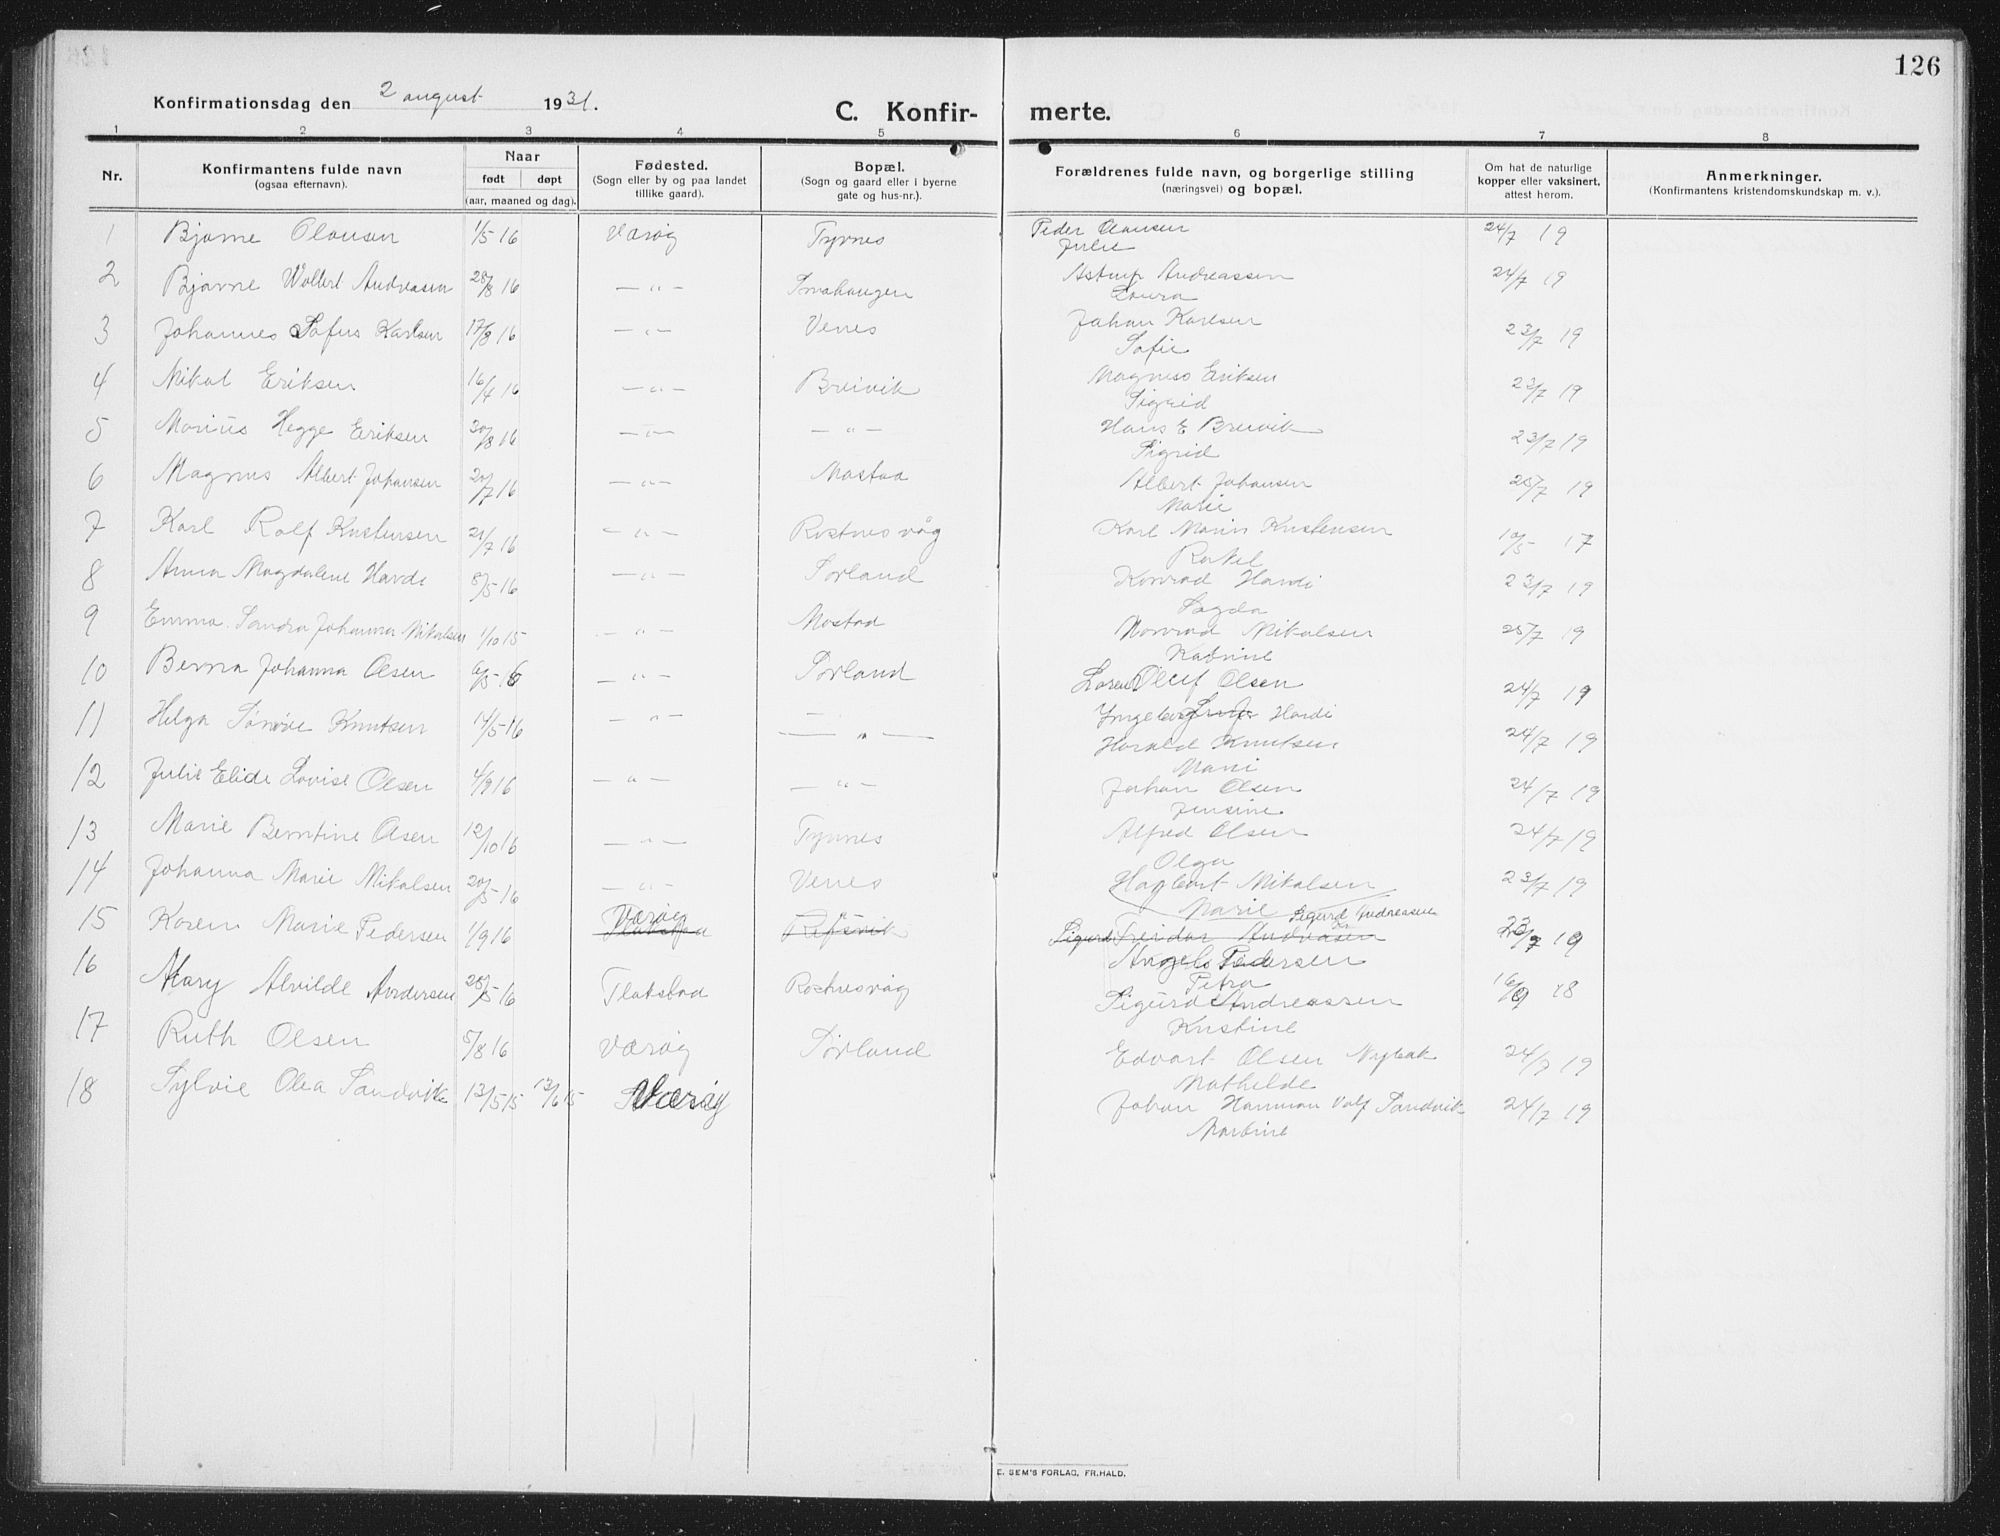 126
Konfirmationsdag den 2 august 1931.
C. Konfir- merte.
1 2 3 4 5 6 7 8
Nr.
Konfirmantens fulde navn
(ogsaa efternavn).
Naar
født døpt
(aar, maaned og dag).
Fødested.
(Sogn eller by og paa landet
tillike gaard).
Bopæl.
(Sogn og gaard eller i byerne
gate og hus-nr.).
Forældrenes fulde navn, og borgerlige stilling
(næringsvei) og bopæl.
Om hat de naturlige
kopper eller vaksinert,
attest herom.
Anmerkninger.
(Konfirmantens kristendomskundskap m. v.).
1 Bjarne Olausen 1/5 16 Værøy Tyvnes Peder Olausen 24/7 19
Julie
2 Bjarne Wolbert Andreasen 28/8 16 — " — Astrup Andreassen 24/7 19
Laura
3 Johannes Sofus Karlsen 17/8 16 — " — Venes Johan Karlsen 23/7 19
Sofie
4 Mikal Eriksen 16/4 16 — " — Breivik Magnus Eriksen 23/7 19
Sigrid
5 Marius Hegge Eriksen 20/8 16 — " — — " — Hans E Breivik 23/7 19
Sigrid
6 Magnus Albert Johansen 20/7 16 — " — Mostad Albert Johansen 25/7 19
Marie
7 Karl Rolf Kristensen 21/7 16 — " — Røstnesvåg Karl Marius Kristensen 10/5 - 17
Rakel
8 Anna Magdalene Hardi 8/5-16 — " — Sørland Konrad Hardi 23/7 19
Magda
9 Emma Sandra Johanna Mikalsen 1/10 15 — " — Mostad Konrad Mikalsen 25/7 19
Katrine
10 Berna Johanna Olsen 6/5-16 — " — Sørland Olsen 24/7 19
Ingeborg Hardi
11 Helga Sønøve Knutsen 14/5-16 — " — — " — Harald Knutsen 24/7 19
Marie
12 Julie Elide Lovise Olsen 4/9 16 — " — — " — Johan Olsen 24/7 19
Jensine
13 Marie Berntine Olsen 12/10 16 — " — Tyvnes Alfred Olsen 24/7 19
Olga
14 Johanna Marie Mikalsen 20/5-16 — " — Venes Hagbart Mikalsen 23/7 19
Marie Sigurd Andreassen
15 Karen Marie Pedersen 1/9 16 Værøy
Angels Pedersen
Petra
16 Mary Alvilde Andersen 28/5 16 Flakstad Røstnesvåg Sigurd Andreassen 16/9 18
Kristine
17 Ruth Olsen 5/8 16 Værøy Sørland Edvart Olsen Nybak 24/7 19
Mathilde
18 Sylvie Olea Sandvik 13/5 15 13/6 15 Værøy Johan Sandvik 24/7 19
Martine
E. SEM'S FORLAG, FR.HALD.